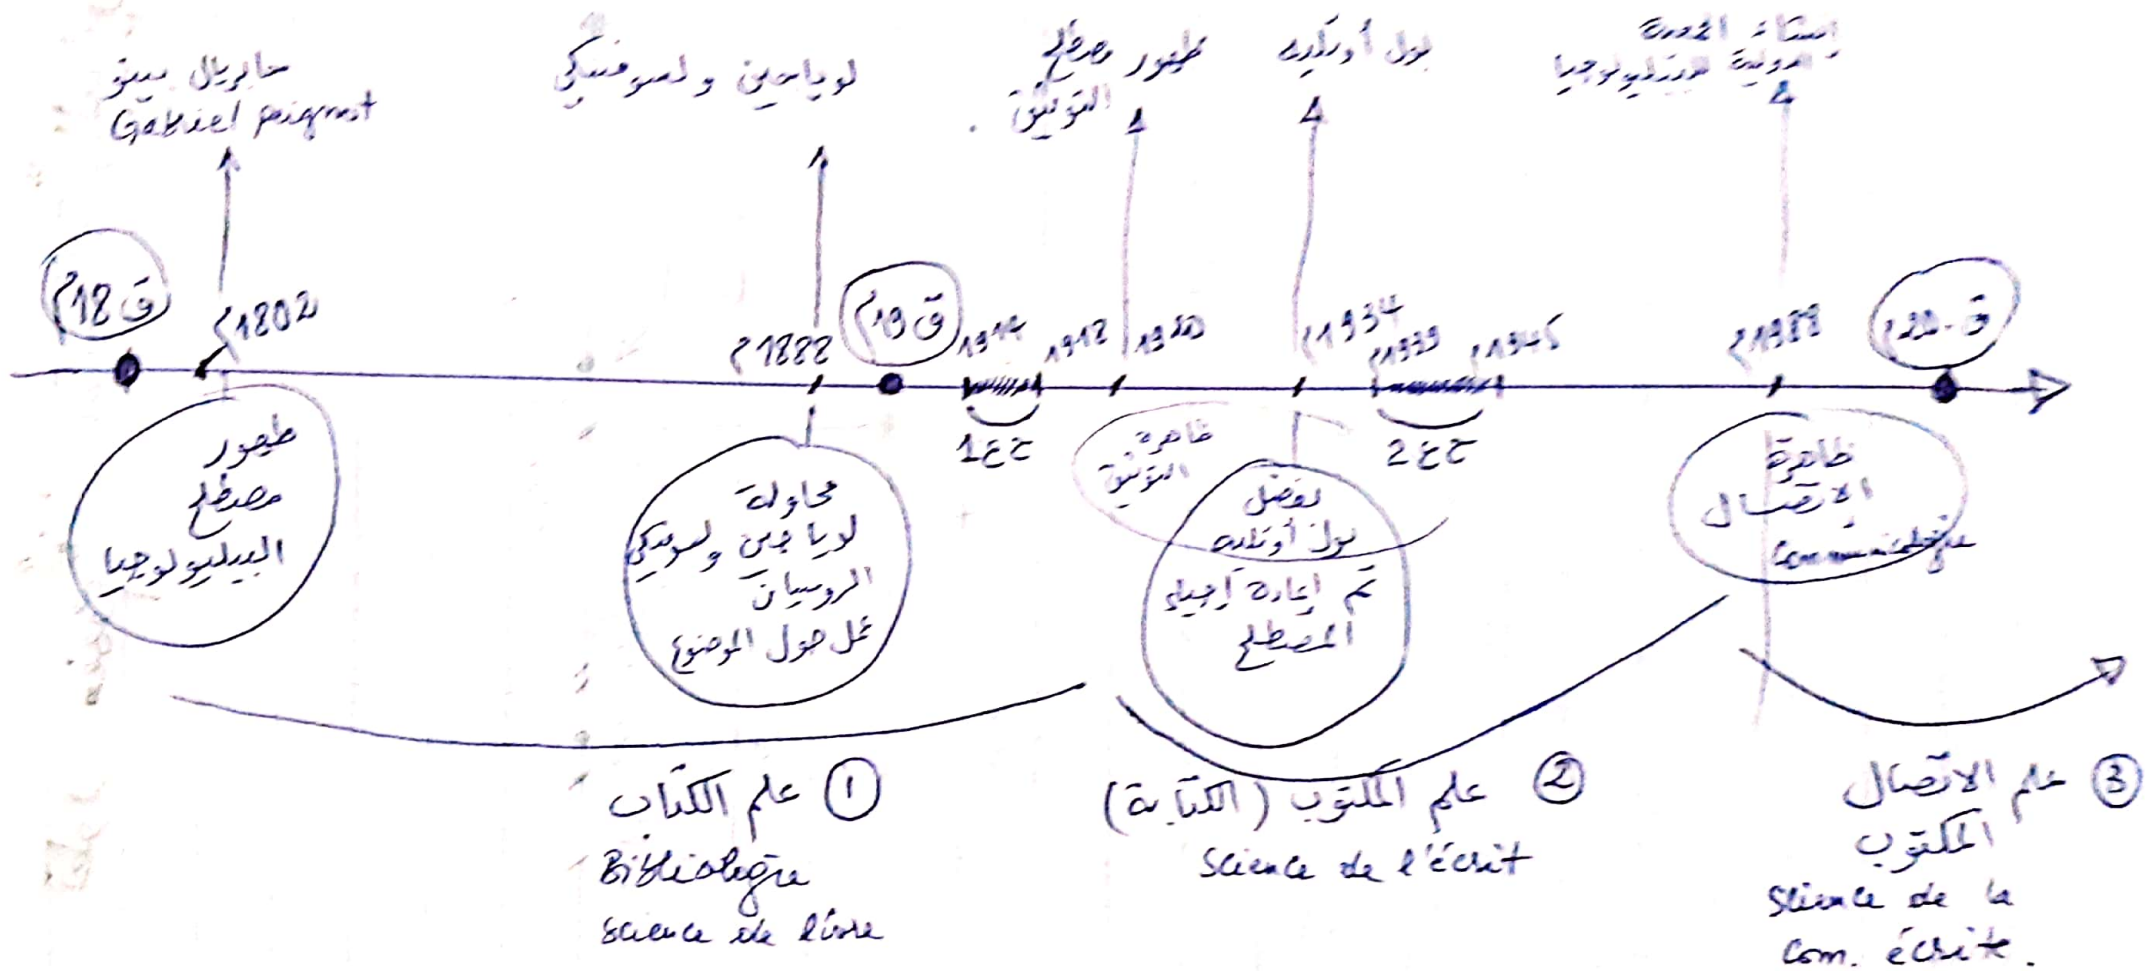 جابريال بينو
Gabriel Peignot
لوباجين ولسوفسكي
ظهور مصطلح
التوثيق
بول أوتليه
إنشاء الجمعية
الدولية للببليولوجيا
ق 18م
1802م
1888م
ق 19م
1914
1918
1920
1934م
1939م
1945م
1988م
ق 20م
ح ع 1
ح ع 2
ظهور
مصطلح
الببليولوجيا
محاولة
لوباجين ولسوفسكي
الروسيان
عمل حول الموضوع
ظاهرة
التوثيق
بفضل
بول أوتليه
تم إعادة إحياء
المصطلح
ظاهرة
الاتصال
① علم الكتاب
Bibliologie
Science de livre
② علم المكتوب (الكتابة)
Science de l'écrit
③ علم الاتصال
المكتوب
Science de la
Com. écrite.